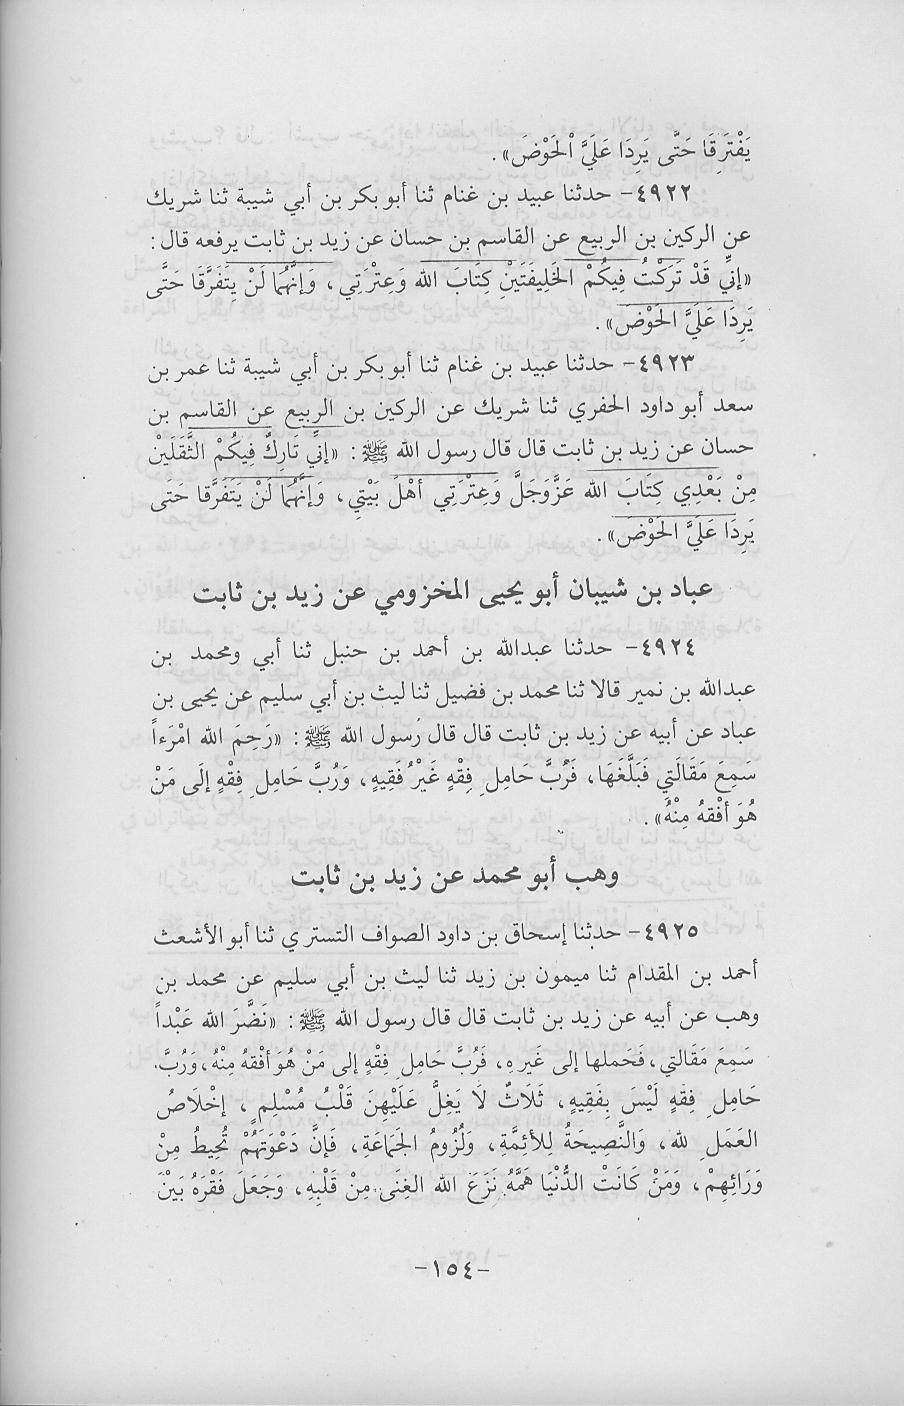 يَفْتَرِقَا حَتَّى يَرِدَا عَلَيَّ الْحَوْضَ».
٤٩٢٢- حدثنا عبيد بن غنام ثنا أبو بكر بن أبي شيبة ثنا شريك
عن الركين بن الربيع عن القاسم بن حسان عن زيد بن ثابت يرفعه قال:
«إنِّي قَدْ تَرَكْتُ فِيكُمْ الخَلِيفَتَيْنِ كِتَابَ الله وَعِتْرَتِي، وَإنَّهُمَا لَنْ يَتَفَرَّقَا حَتَّى
يَرِدَا عَلَيَّ الحَوْضَ».
٤٩٢٣- حدثنا عبيد بن غنام ثنا أبو بكر بن أبي شيبة ثنا عمر بن
سعد أبو داود الحفري ثنا شريك عن الركين بن الربيع عن القاسم بن
حسان عن زيد بن ثابت قال قال رسول الله ﷺ: «إنِّي تَارِكٌ فِيكُمْ الثَّقَلَيْنِ
مِنْ بَعْدِي كِتَابَ الله عَزَّوَجَلَّ وَعِتْرَتِي أهْلَ بَيْتِي، وَإنَّهُمَا لَنْ يَتَفَرَّقا حَتَّى
يَرِدَا عَلَيَّ الحَوْضَ».
عباد بن شيبان أبو يحيى المخزومي عن زيد بن ثابت
٤٩٢٤- حدثنا عبدالله بن أحمد بن حنبل ثنا أبي ومحمد بن
عبدالله بن نمير قالا ثنا محمد بن فضيل ثنا ليث بن أبي سليم عن يحيى بن
عباد عن أبيه عن زيد بن ثابت قال قال رسول الله ﷺ: «رَحِمَ الله امْرَءاً
سَمِعَ مَقَالَتِي فَبَلَّغَهَا، فَرُبَّ حَامِلِ فِقْهٍ غَيْرُ فَقِيهٍ، وَرُبَّ حَامِلِ فِقْهٍ إلَى مَنْ
هُوَ أفْقَهُ مِنْهُ».
وهب أبو محمد عن زيد بن ثابت
٤٩٢٥- حدثنا إسحاق بن داود الصواف التستري ثنا أبو الأشعث
أحمد بن المقدام ثنا ميمون بن زيد ثنا ليث بن أبي سليم عن محمد بن
وهب عن أبيه عن زيد بن ثابت قال قال رسول الله ﷺ: «نَضَّرَ الله عَبْداً
سَمِعَ مَقَالَتي، فَحَملها إلى غَيرِهِ، فَرُبَّ حَامِلِ فِقْهٍ إلى مَنْ هُوَ أفْقَهُ مِنْهُ، وَرُبَّ
حَامِلِ فِقْهٍ لَيْسَ بِفَقِيهٍ، ثَلَاثٌ لَا يَغِلُّ عَلَيْهِنَ قَلْبُ مُسْلِمٍ، إخْلَاصُ
العَمَلِ لله، وَالنَّصِيحَةُ لِلأئِمَّةِ، وَلُزُومُ الجَمَاعَةِ، فَإنَّ دَعْوَتَهُمْ تُحِيطُ مِنْ
وَرَائِهِمْ، وَمَنْ كَانَتْ الدُّنْيَا هَمَّهُ نَزَعَ الله الغِنَى مِنْ قَلْبِهِ، وَجَعَلَ فَقْرَهُ بَيْنَ
-١٥٤-